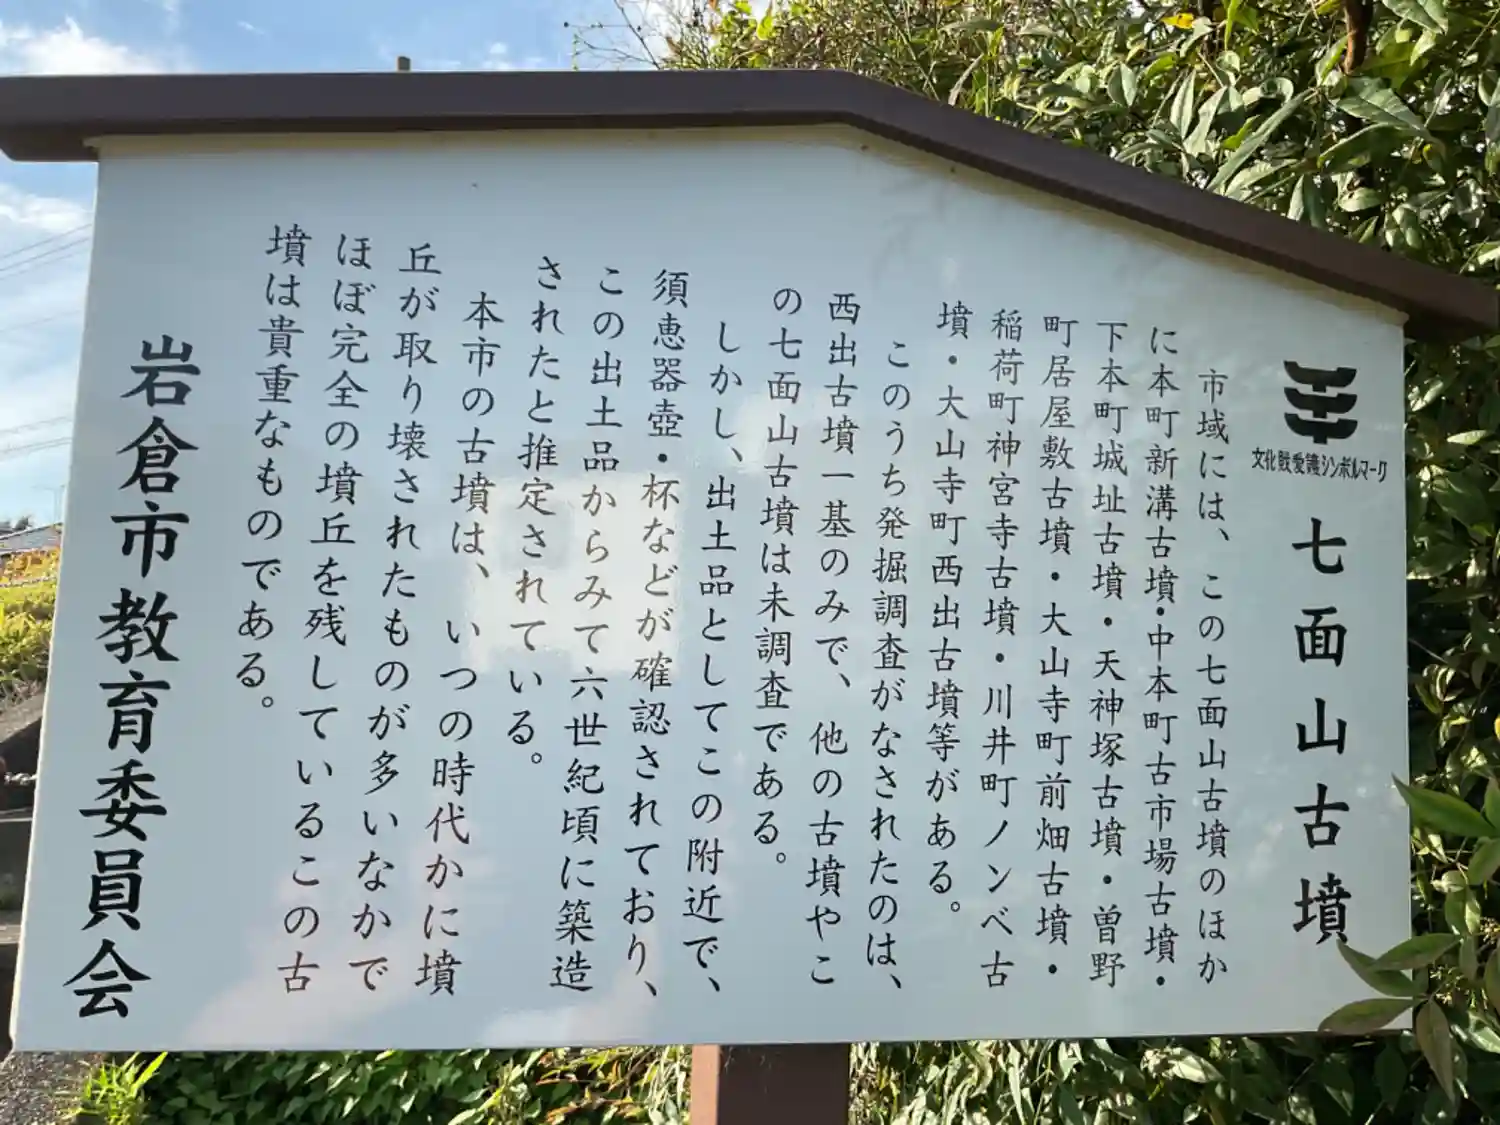 文化財愛護シンボルマーク
七面山古墳
市域には、この七面山古墳のほか
に本町新溝古墳・中本町古市場古墳・
下本町城址古墳・天神塚古墳・曽野
町居屋敷古墳・大山寺町前畑古墳・
稲荷町神宮寺古墳・川井町ノンベ古
墳・大山寺町西出古墳等がある。
このうち発掘調査がなされたのは、
西出古墳一基のみで、他の古墳やこ
の七面山古墳は未調査である。
しかし、出土品としてこの附近で、
須恵器壺・杯などが確認されており、
この出土品からみて六世紀頃に築造
されたと推定されている。
本市の古墳は、いつの時代かに墳
丘が取り壊されたものが多いなかで
ほぼ完全の墳丘を残しているこの古
墳は貴重なものである。
岩倉市教育委員会